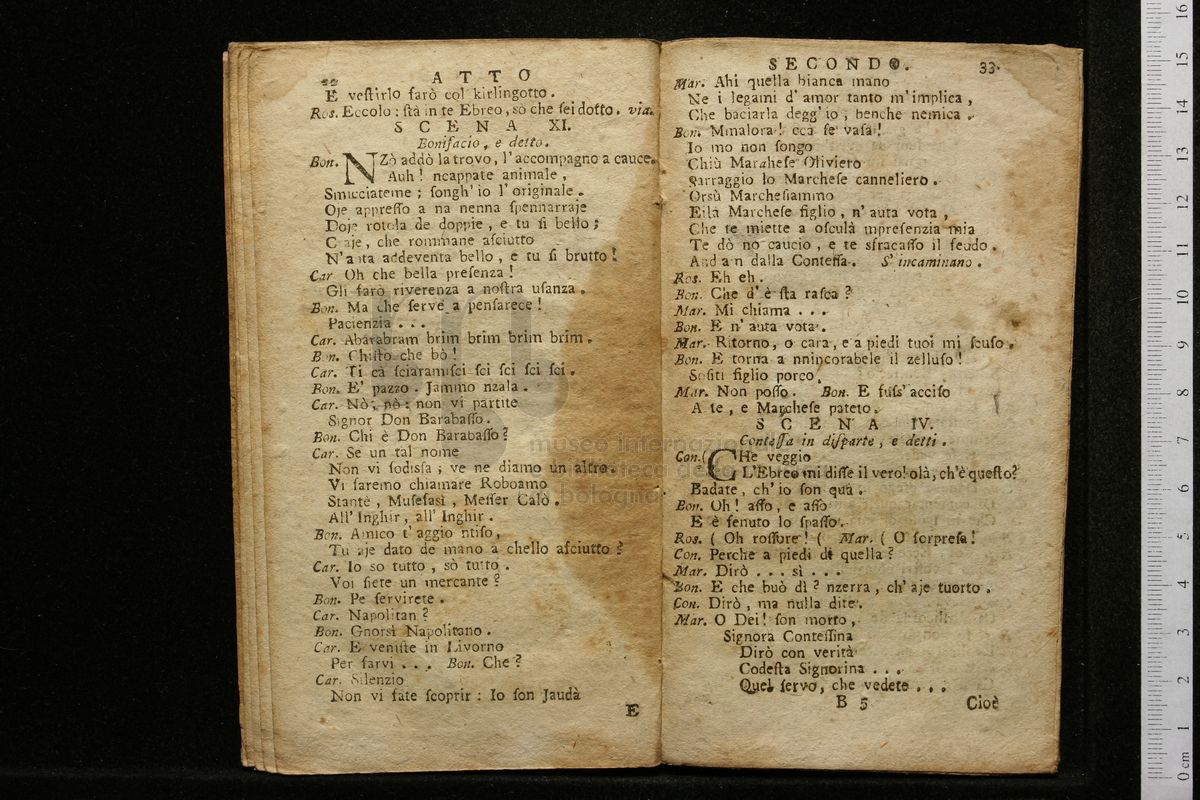 ATTO
E vestirlo farò col kirlingotto.
Ros. Eccolo: stà in te Ebreo, sò che sei dotto. via.
SCENA XI.
Bonifacio, e detto.
Bon. NZò addò la trovo, l'accompagno a cauce.
Auh! ncappate animale,
Smicciateme; songh'io l'originale.
Oje appresso a na nenna spennarraje
Doje rotola de doppie, e tu si bello;
C aje, che rommane asciutto
N'auta addeventa bello, e tu si brutto!
Car. Oh che bella presenza!
Gli farò riverenza a nostra usanza.
Bon. Ma che serve a pensarece!
Pacienzia . . .
Car. Abarabram brim brim brim brim.
Bon. Chisto che bò!
Car. Ti cà sciaramisci sci sci sci sci.
Bon. E' pazzo. Jammo nzala.
Car. Nò, nò: non vi partite
Signor Don Barabasso.
Bon. Chi è Don Barabasso?
Car. Se un tal nome
Non vi sodisfa; ve ne diamo un altro.
Vi faremo chiamare Roboamo
Stantè, Musefasi, Messer Calò.
All' Inghir, all' Inghir.
Bon. Amico t'aggio ntiso,
Tu aje dato de mano a chello asciutto?
Car. Io so tutto, sò tutto.
Voi siete un mercante?
Bon. Pe servirete.
Car. Napolitan?
Bon. Gnorsì Napolitano.
Car. E veniste in Livorno
Per farvi . . . Bon. Che?
Car. Silenzio
Non vi fate scoprir: Io son Jaudà
E
SECONDO. 33.
Mar. Ahi quella bianca mano
Ne i legami d'amor tanto m'implica,
Che baciarla degg'io, benche nemica.
Bon. Mmalora! ccà se vasa!
Io mo non songo
Chiù Marchese Oliviero
Sarraggio lo Marchese canneliero.
Orsù Marchesiammo
Eilà Marchese figlio, n'auta vota,
Che te miette a osculà mpresenzia mia
Te dò no caucio, e te sfracasso il feudo.
Andian dalla Contessa. S'incaminano.
Ros. Eh eh.
Bon. Che d'è sta rasca?
Mar. Mi chiama . . .
Bon. E n'auta vota.
Mar. Ritorno, o cara, e a piedi tuoi mi scuso.
Bon. E torna a nnincorabele il zelluso!
Sositi figlio porco,
Mar. Non posso. Bon. E fuss'acciso
A te, e Marchese pateto.
SCENA IV.
Contessa in disparte, e detti.
Con. ( CHe veggio
L'Ebreo mi disse il vero! olà, ch'è questo?
Badate, ch'io son quà.
Bon. Oh! asso, e asso
E è fenuto lo spasso.
Ros. ( Oh rossore! ( Mar. ( O sorpresa!
Con. Perche a piedi di quella?
Mar. Dirò . . . sì . . .
Bon. E che buò dì? nzerra, ch'aje tuorto.
Con. Dirò, ma nulla dite.
Mar. O Dei! son morto,
Signora Contessina
Dirò con verità
Codesta Signorina . . .
Quel servo, che vedete . . .
B 5 Cioè